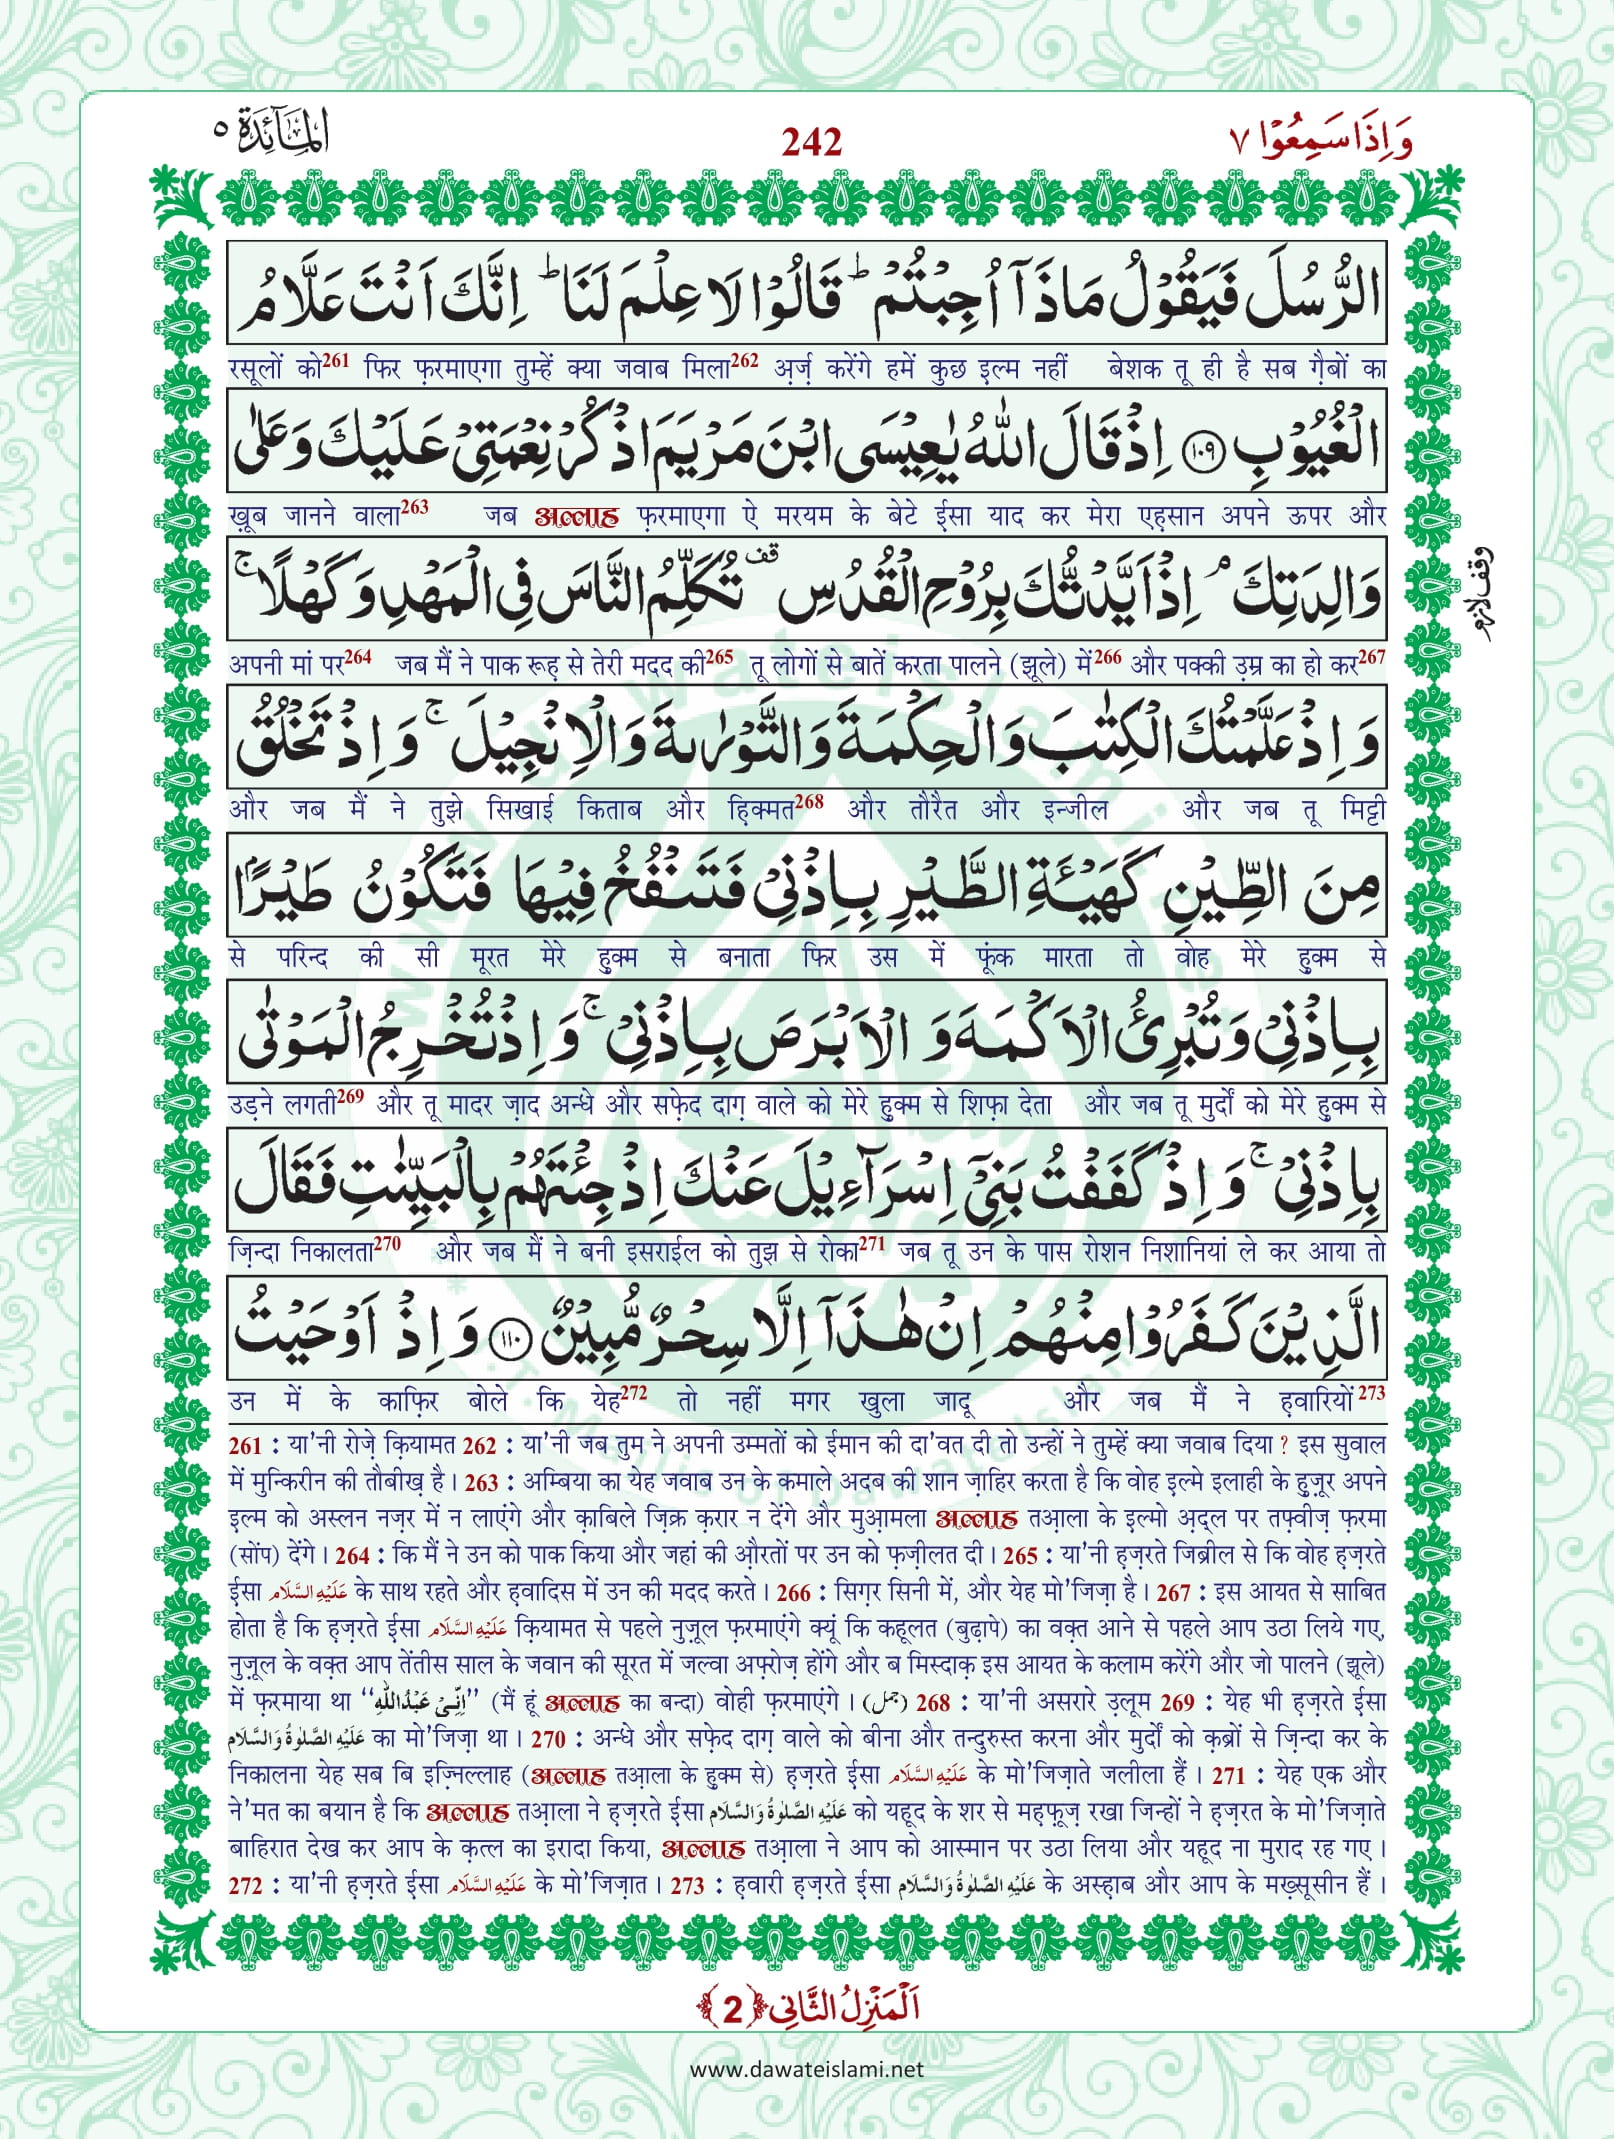 وَاِذَا سَمِعُوۡا ٧ 242 اَلْمَآئِدَۃ ٥
الرُّسُلَ فَیَقُوۡلُ مَاذَاۤ اُجِبْتُمْ ؕ قَالُوۡا لَا عِلْمَ لَنَا ؕ اِنَّكَ اَنْتَ عَلَّامُ
रसूलों को261 फिर फ़रमाएगा तुम्हें क्या जवाब मिला262 अ़र्ज़ करेंगे हमें कुछ इ़ल्म नहीं बेशक तू ही है सब ग़ैबों का
الْغُیُوۡبِ ﴿۱۰۹﴾ اِذْ قَالَ اللّٰهُ یٰعِیۡسَی ابْنَ مَرْیَمَ اذْكُرْ نِعْمَتِیۡ عَلَیۡكَ وَعَلٰی
ख़ूब जानने वाला263 जब अल्लाह फ़रमाएगा ऐ मरयम के बेटे ईसा याद कर मेरा एह़सान अपने ऊपर और
وَالِدَتِكَ ۘ اِذْ اَیَّدْتُّكَ بِرُوۡحِ الْقُدُسِ ۟ قف تُكَلِّمُ النَّاسَ فِی الْمَهْدِ وَكَهْلًا ۚ
وقف لازم
अपनी मां पर264 जब मैं ने पाक रूह़ से तेरी मदद की265 तू लोगों से बातें करता पालने (झूले) में266 और पक्की उ़म्र का हो कर267
وَ اِذْ عَلَّمْتُكَ الْكِتٰبَ وَالْحِكْمَةَ وَالتَّوْرٰىةَ وَالْاِنْجِیۡلَ ۚ وَ اِذْ تَخْلُقُ
और जब मैं ने तुझे सिखाई किताब और ह़िक्मत268 और तौरैत और इन्जील और जब तू मिट्टी
مِنَ الطِّیۡنِ كَهَیۡـَٔةِ الطَّیۡرِ بِاِذْنِیۡ فَتَنْفُخُ فِیۡهَا فَتَكُوۡنُ طَیۡرًۢا
से परिन्द की सी मूरत मेरे हुक्म से बनाता फिर उस में फूंक मारता तो वोह मेरे हुक्म से
بِاِذْنِیۡ وَتُبْرِئُ الْاَكْمَهَ وَ الْاَبْرَصَ بِاِذْنِیۡ ۚ وَ اِذْ تُخْرِجُ الْمَوْتٰی
उड़ने लगती269 और तू मादर ज़ाद अन्धे और सफ़ेद दाग़ वाले को मेरे हुक्म से शिफ़ा देता और जब तू मुर्दों को मेरे हुक्म से
بِاِذْنِیۡ ۚ وَ اِذْ كَفَفْتُ بَنِیۡۤ اِسْرَآءِیۡلَ عَنْكَ اِذْ جِئْتَهُمْ بِالْبَیِّنٰتِ فَقَالَ
ज़िन्दा निकालता270 और जब मैं ने बनी इसराईल को तुझ से रोका271 जब तू उन के पास रोशन निशानियां ले कर आया तो
الَّذِیۡنَ كَفَرُوۡا مِنْهُمْ اِنْ هٰذَاۤ اِلَّا سِحْرٌ مُّبِیۡنٌ ﴿۱۱۰﴾ وَ اِذْ اَوْحَیۡتُ
उन में के काफ़िर बोले कि येह272 तो नहीं मगर खुला जादू और जब मैं ने ह़वारियों273
261 : या'नी रोज़े क़ियामत 262 : या'नी जब तुम ने अपनी उम्मतों को ईमान की दा'वत दी तो उन्हों ने तुम्हें क्या जवाब दिया ? इस सुवाल
में मुन्किरीन की तौबीख़ है। 263 : अम्बिया का येह जवाब उन के कमाले अदब की शान ज़ाहिर करता है कि वोह इ़ल्मे इलाही के हुज़ूर अपने
इ़ल्म को अस्लन नज़र में न लाएंगे और क़ाबिले ज़िक्र क़रार न देंगे और मुआ़मला अल्लाह तआ़ला के इ़ल्मो अ़द्ल पर तफ़्वीज़ फ़रमा
(सोंप) देंगे। 264 : कि मैं ने उन को पाक किया और जहां की औ़रतों पर उन को फ़ज़ीलत दी। 265 : या'नी ह़ज़रते जिब्रील से कि वोह ह़ज़रते
ईसा عَلَیْہِ السَّلَام के साथ रहते और ह़वादिस में उन की मदद करते। 266 : सिग़र सिनी में, और येह मो'जिज़ा है। 267 : इस आयत से साबित
होता है कि ह़ज़रते ईसा عَلَیْہِ السَّلَام क़ियामत से पहले नुज़ूल फ़रमाएंगे क्यूं कि कहूलत (बुढ़ापे) का वक़्त आने से पहले आप उठा लिये गए,
नुज़ूल के वक़्त आप तेंतीस साल के जवान की सूरत में जल्वा अफ़्रोज़ होंगे और ब मिस्दाक़ इस आयत के कलाम करेंगे और जो पालने (झूले)
में फ़रमाया था ‘‘اِنِّیْ عَبْدُ اللّٰہِ’’ (मैं हूं अल्लाह का बन्दा) वोही फ़रमाएंगे। (جمل) 268 : या'नी असरारे उ़लूम 269 : येह भी ह़ज़रते ईसा
عَلَیْہِ الصَّلٰوۃُ وَالسَّلَام का मो'जिज़ा था। 270 : अन्धे और सफ़ेद दाग़ वाले को बीना और तन्दुरुस्त करना और मुर्दों को क़ब्रों से ज़िन्दा कर के
निकालना येह सब बि इज़्निल्लाह (अल्लाह तआ़ला के हुक्म से) ह़ज़रते ईसा عَلَیْہِ السَّلَام के मो'जिज़ाते जलीला हैं। 271 : येह एक और
ने'मत का बयान है कि अल्लाह तआ़ला ने ह़ज़रते ईसा عَلَیْہِ الصَّلٰوۃُ وَالسَّلَام को यहूद के शर से मह़फ़ूज़ रखा जिन्हों ने ह़ज़रत के मो'जिज़ाते
बाहिरात देख कर आप के क़त्ल का इरादा किया, अल्लाह तआ़ला ने आप को आस्मान पर उठा लिया और यहूद ना मुराद रह गए।
272 : या'नी ह़ज़रते ईसा عَلَیْہِ السَّلَام के मो'जिज़ात। 273 : ह़वारी ह़ज़रते ईसा عَلَیْہِ الصَّلٰوۃُ وَالسَّلَام के अस्ह़ाब और आप के मख़्सूसीन हैं।
اَلْمَنْزِلُ الثَّانِی ﴿2﴾
www.dawateislami.net